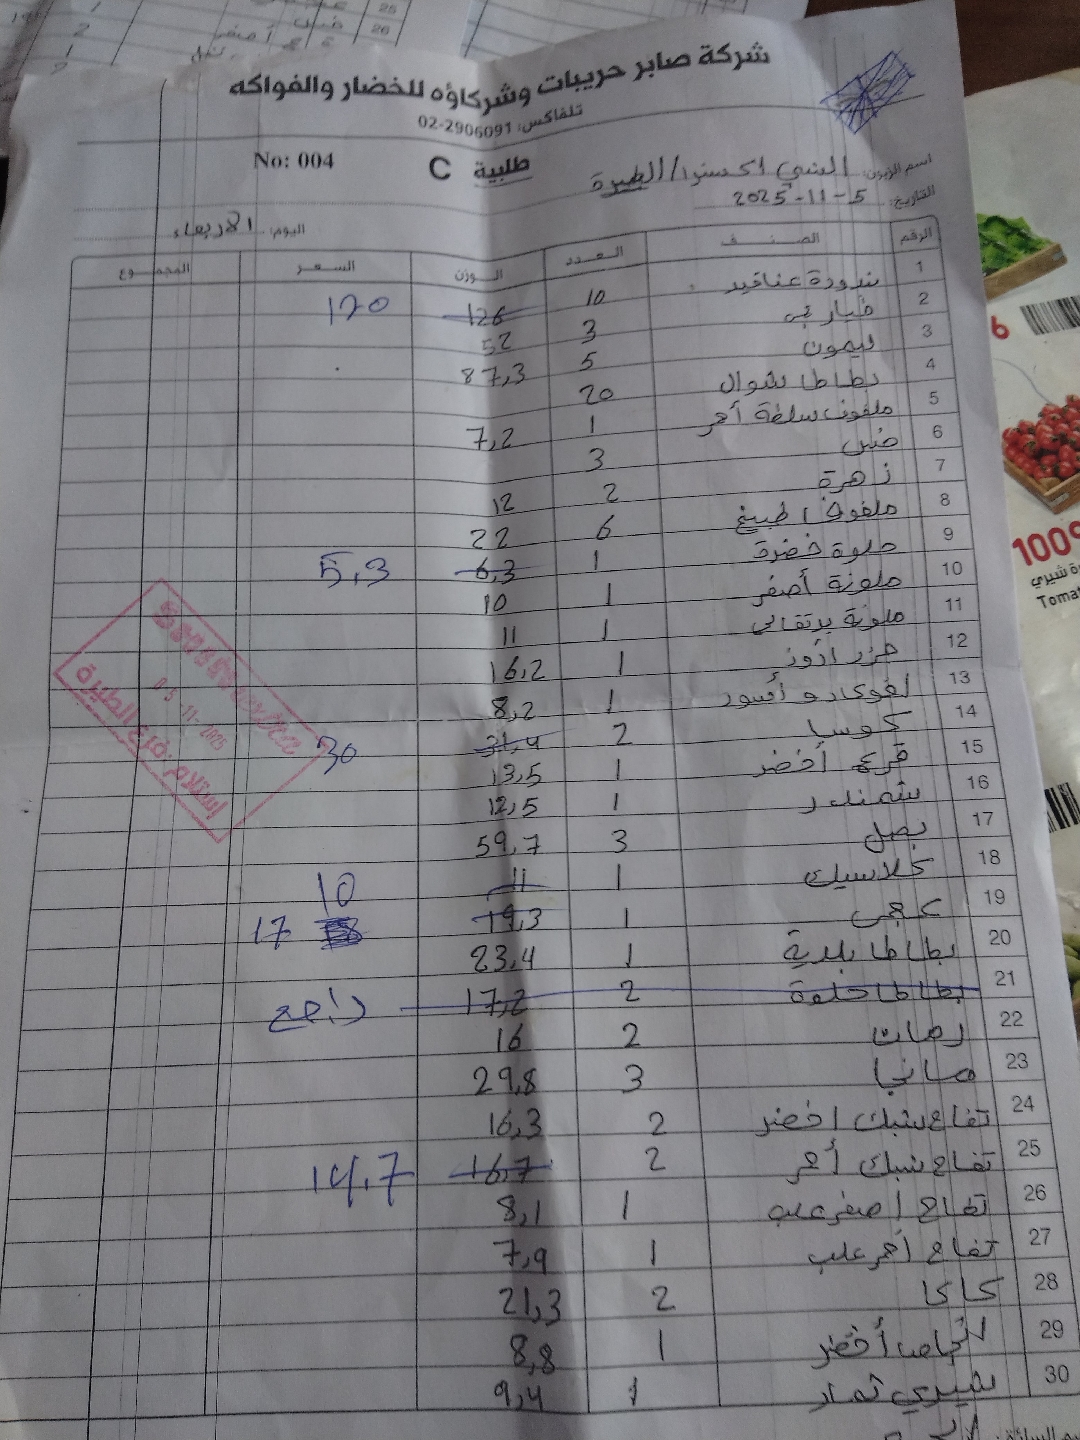 شركة صابر حريبات وشركاؤه للخضار والفواكه
تلفاكس: 02-2906091
No: 004
طلبية C
اسم الزبون: الشني اكسترا/الطيرة
التاريخ: 5-11-2025
اليوم: الأربعاء
الرقم الصنف العدد الوزن السعر المجموع
1 بندورة عناقيد 10 126 120
2 خيار 3 52
3 ليمون 5 87,3
4 بطاطا شوال 20
5 ملفوف سلطة أحمر 1 7,2
6 خس 3
7 زهرة 2 12
8 ملفوف طبيخ 6 22
9 حلوة خضرة 1 6,3 5,3
10 ملونة أصفر 1 10
11 ملونة برتقالي 1 11
12 جزر 1 16,2
13 افوكادو أسود 1 8,2
14 كوسا 2 31,4 30
15 قرع أخضر 1 13,5
16 شمندر 1 12,5
17 بصل 3 59,7
18 كلاسيك 1 11 10
19 عجر 1 19,3 17
20 بطاطا بلدية 1 23,4
21 بطاطا حلوة 2 17,2 راجع
22 رمان 2 16
23 مانجا 3 29,8
24 تفاح شبك اخضر 2 16,3
25 تفاح شبك أحمر 2 16,7 14,7
26 تفاح اصفر علب 1 8,1
27 تفاح أحمر علب 1 7,9
28 كاكا 2 21,3
29 انجاص أخضر 1 8,8
30 شيري تمار 1 9,4
05-11-2025
إستلام فرع الطيرة
25
26
6
100%
Tomat